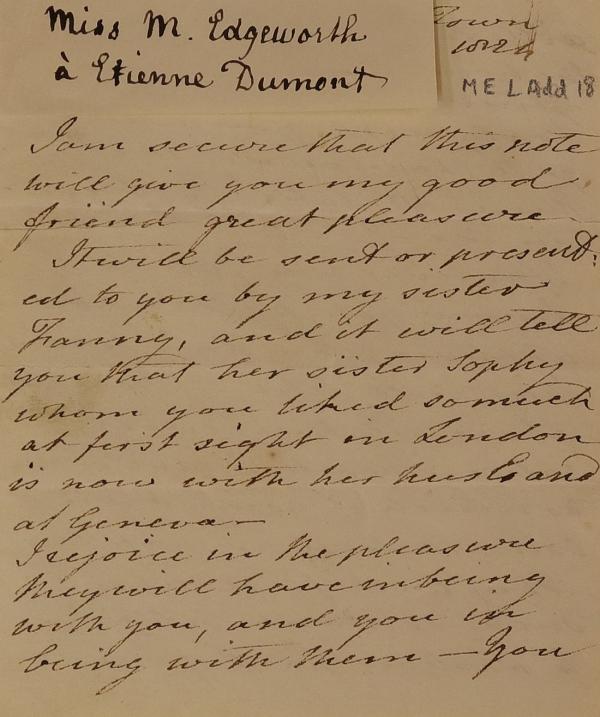 Miss M. Edgeworth
à Etienne Dumont
Town
M E L Add 18
I am secure that this note
will give you my good
friend great pleasure
It will be sent or present:
ed to you by my sister
Fanny, and it will tell
you that her sister Sophy
whom you liked so much
at first sight in London
is now with her husband
at Geneva—
I rejoice in the pleasure
they will have in being
with you, and you in
being with them — You